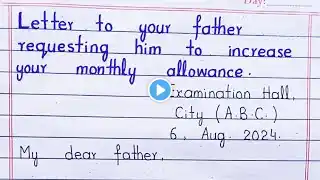 Day:
Letter to your father
requesting him to increase
your monthly allowance.
Examination Hall,
City (A.B.C.)
6, Aug. 2024.
My dear father,